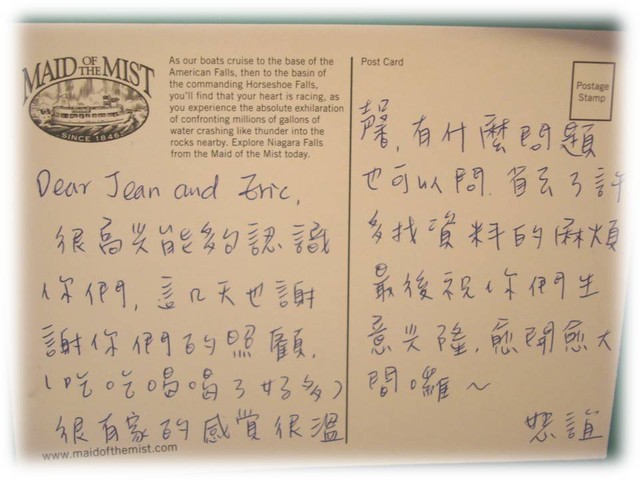 MAID OF THE MIST
SINCE 1846
As our boats cruise to the base of the
American Falls, then to the basin of
the commanding Horseshoe Falls,
you'll find that your heart is racing, as
you experience the absolute exhilaration
of confronting millions of gallons of
water crashing like thunder into the
rocks nearby. Explore Niagara Falls
from the Maid of the Mist today.
Dear Jean and Eric,
很高兴能夠認識
你們,這几天也謝
謝你們的照顧.
(吃吃喝喝了好多)
很有家的感覺很溫
www.maidofthemist.com
Post Card
Postage
Stamp
馨,有什麼問題
也可以問.省去了許
多找資料的麻煩
最後祝你們生
意兴隆,愈開愈大
間囉~
恕誼